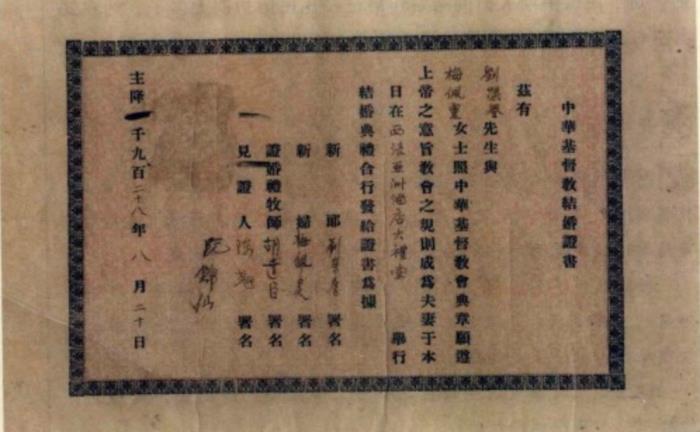 中華基督教結婚證書
茲有
劉 先生與
梅佩 女士照中華基督教會典章願遵
上帝之意旨教會之規則成爲夫妻于本
日在西濠亞洲酒店大禮堂 舉行
結婚典禮合行發給證書爲據
新郎 劉 署名
新婦 梅佩 署名
證婚禮牧師 胡 署名
見證人 署名
阮錦
主降一千九百二十八年八月二十日